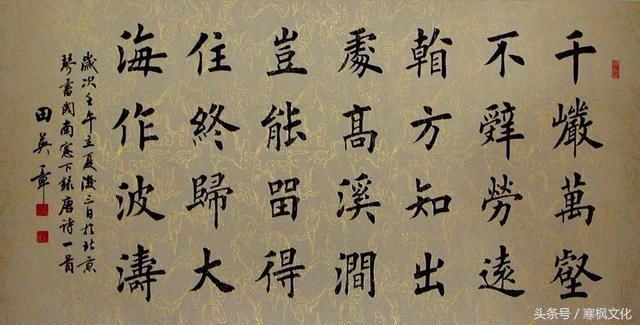 千巖萬壑
不辭勞遠
看方知出
處髙溪澗
豈能留得
住終歸大
海作波濤
歲次壬午立夏後三日於北京
琴書閣南窓下錄唐詩一首
田英章
头条号／寒枫文化